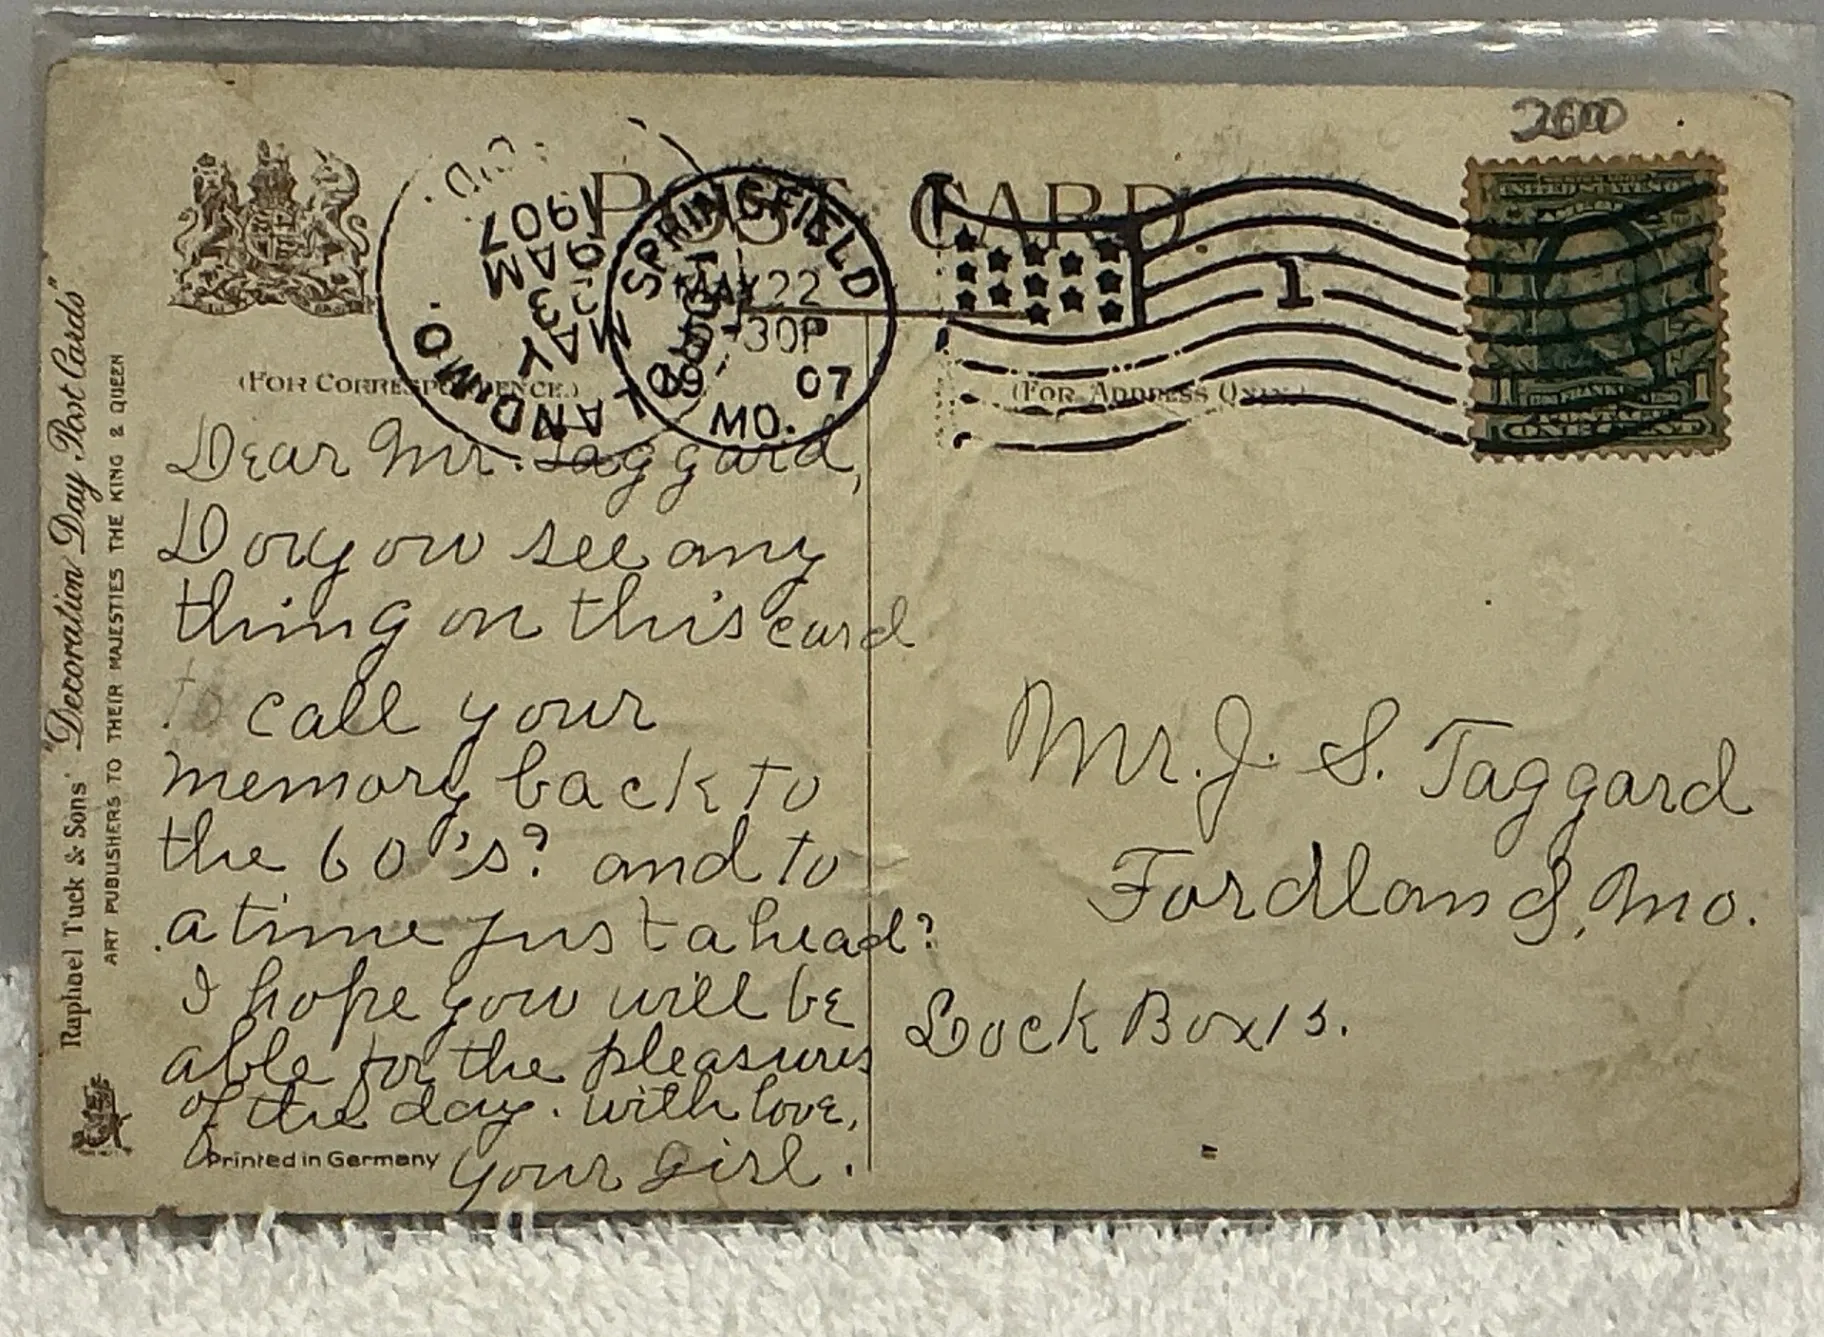 2600
POST CARD
SPRINGFIELD
MAY 22
-30P
19 07
MO.
1907
9 AM
MAY 23
LAND MO.
1
UNITED STATES OF
AMERICA
FRANKLIN
POSTAGE
1 ONE CENT 1
(FOR CORRESPONDENCE.)
(FOR ADDRESS ONLY.)
Raphael Tuck & Sons' "Decoration Day Post Cards"
ART PUBLISHERS TO THEIR MAJESTIES THE KING & QUEEN
Dear Mr. Taggard,
Do you see any
thing on this card
to call your
memory back to
the 60's? and to
a time just ahead?
I hope you will be
able for the pleasures
of the day. with love,
Your Girl.
Printed in Germany
Mr. J. S. Taggard
Fordland, Mo.
Lock Box 15.